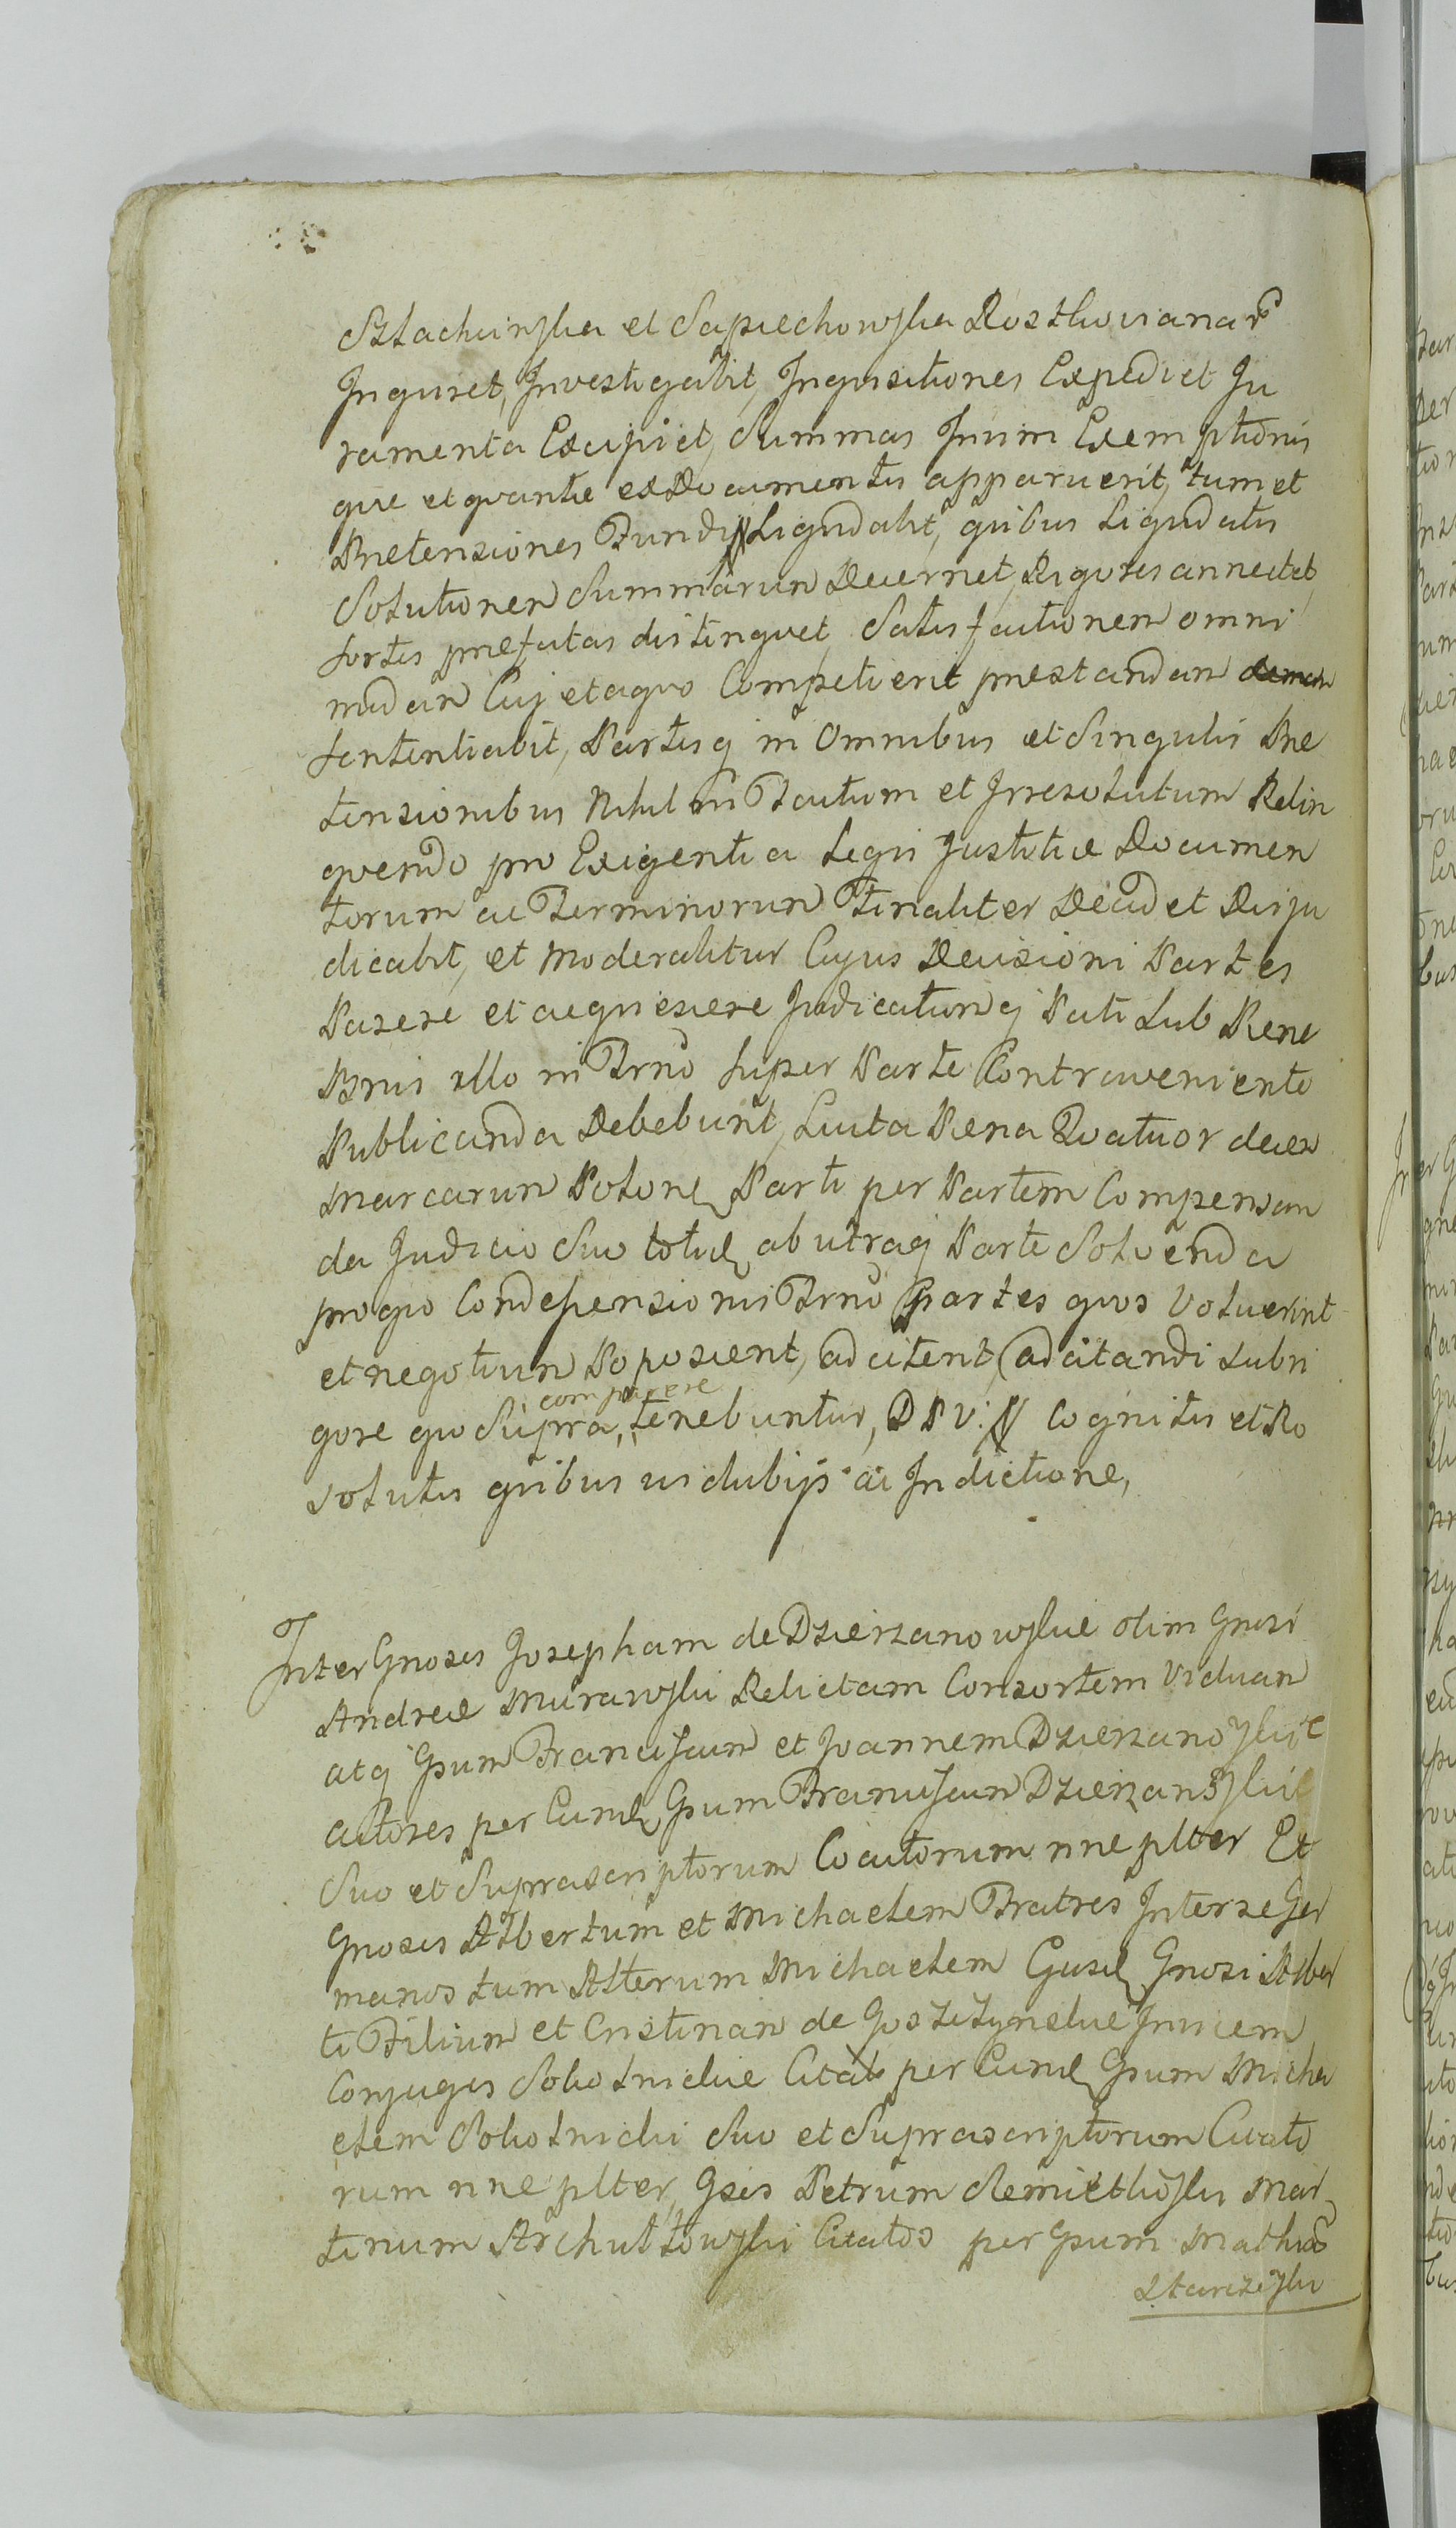 Szlachcinska et Sapiechowska Rostkoviana
Inquiret, Investigabit, Inquisitiones Expediet Ju
ramenta Excipiet, Summas Exemptionis
que et quante ex Documentis apparuerit, tum et
Pretensiones Fundi Liqvidabit, quibus Liqvidatis
Solutionem Summarum Decernet, Rigores annectet,
sortes prefatas distinguet Satisfactionem omni
modam Cuj et a quo Competierit prestandam
sententiabit, Partesq in Omnibus et Singulis Pre
tensionibus Nihil in Tactum et Irresolutum Relin
qvendo pro Exigentia Legis Justitiæ Documen
torum ac Terminorum Finaliter Decidet Disju
dicabit, et Moderabitur Cujus Decisioni Partes
Parere et acqviescere Judicatumq Pati Sub Pene
Bnis illo in Trno super Parte Contraveniente
Publicanda Debebunt, Lucta Pena Qvatuor decem
Marcarum Polone Parti per Partem Compensan
da Judicio Suo totie ab utraq Parte Solvenda
pro quo Condepensionis Trno Partes quos Voluerint
et negotium Poposcent, ad citent, ad citandi sub ri
gore quo Supra, comparere tenebuntur, D P V. Cognitis et Ro
solutis quibus vis dubijs ac Indictione,
Inter Gnosos Josepham de Dzierzanowskie olim Gnosi
Andreæ Murawski Relictam Consortem Viduam
atq Gsum Franciscum et Joannem Dzierzanoskie
actores per Eund Gsum Franciscum Dzierzanoski
Suo et Suprascriptorum Coactorum nne plter Et
Gnosos Albertum et Michaelem Fratres Inter se Ger
manos tum Alterum Michaelem Ejusd Gnosi Alber
ti Filium et Cristinam de Invicem
Conjuges Sokolnickie Citatos per Eund Gsum Micha
elem Sokolnicki Suo et Suprascriptorum Citato
rum nne plter, Gsos Petrum Mar
tinum Archutowski Citatos per Gsum Mathia
Starczeski